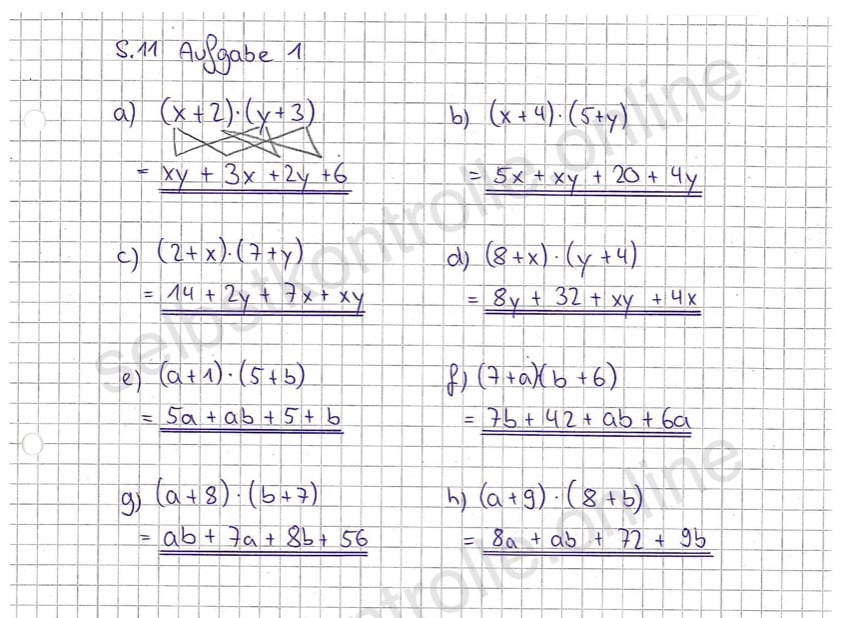 S.11 Aufgabe 1
a) (x+2)·(y+3)
= xy + 3x + 2y + 6
b) (x+4)·(5+y)
= 5x + xy + 20 + 4y
c) (2+x)·(7+y)
= 14 + 2y + 7x + xy
d) (8+x)·(y+4)
= 8y + 32 + xy + 4x
e) (a+1)·(5+b)
= 5a + ab + 5 + b
f) (7+a)(b+6)
= 7b + 42 + ab + 6a
g) (a+8)·(b+7)
= ab + 7a + 8b + 56
h) (a+9)·(8+b)
= 8a + ab + 72 + 9b
selbstkontrolle.online
ntrolle.online